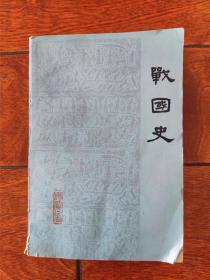 戰國史